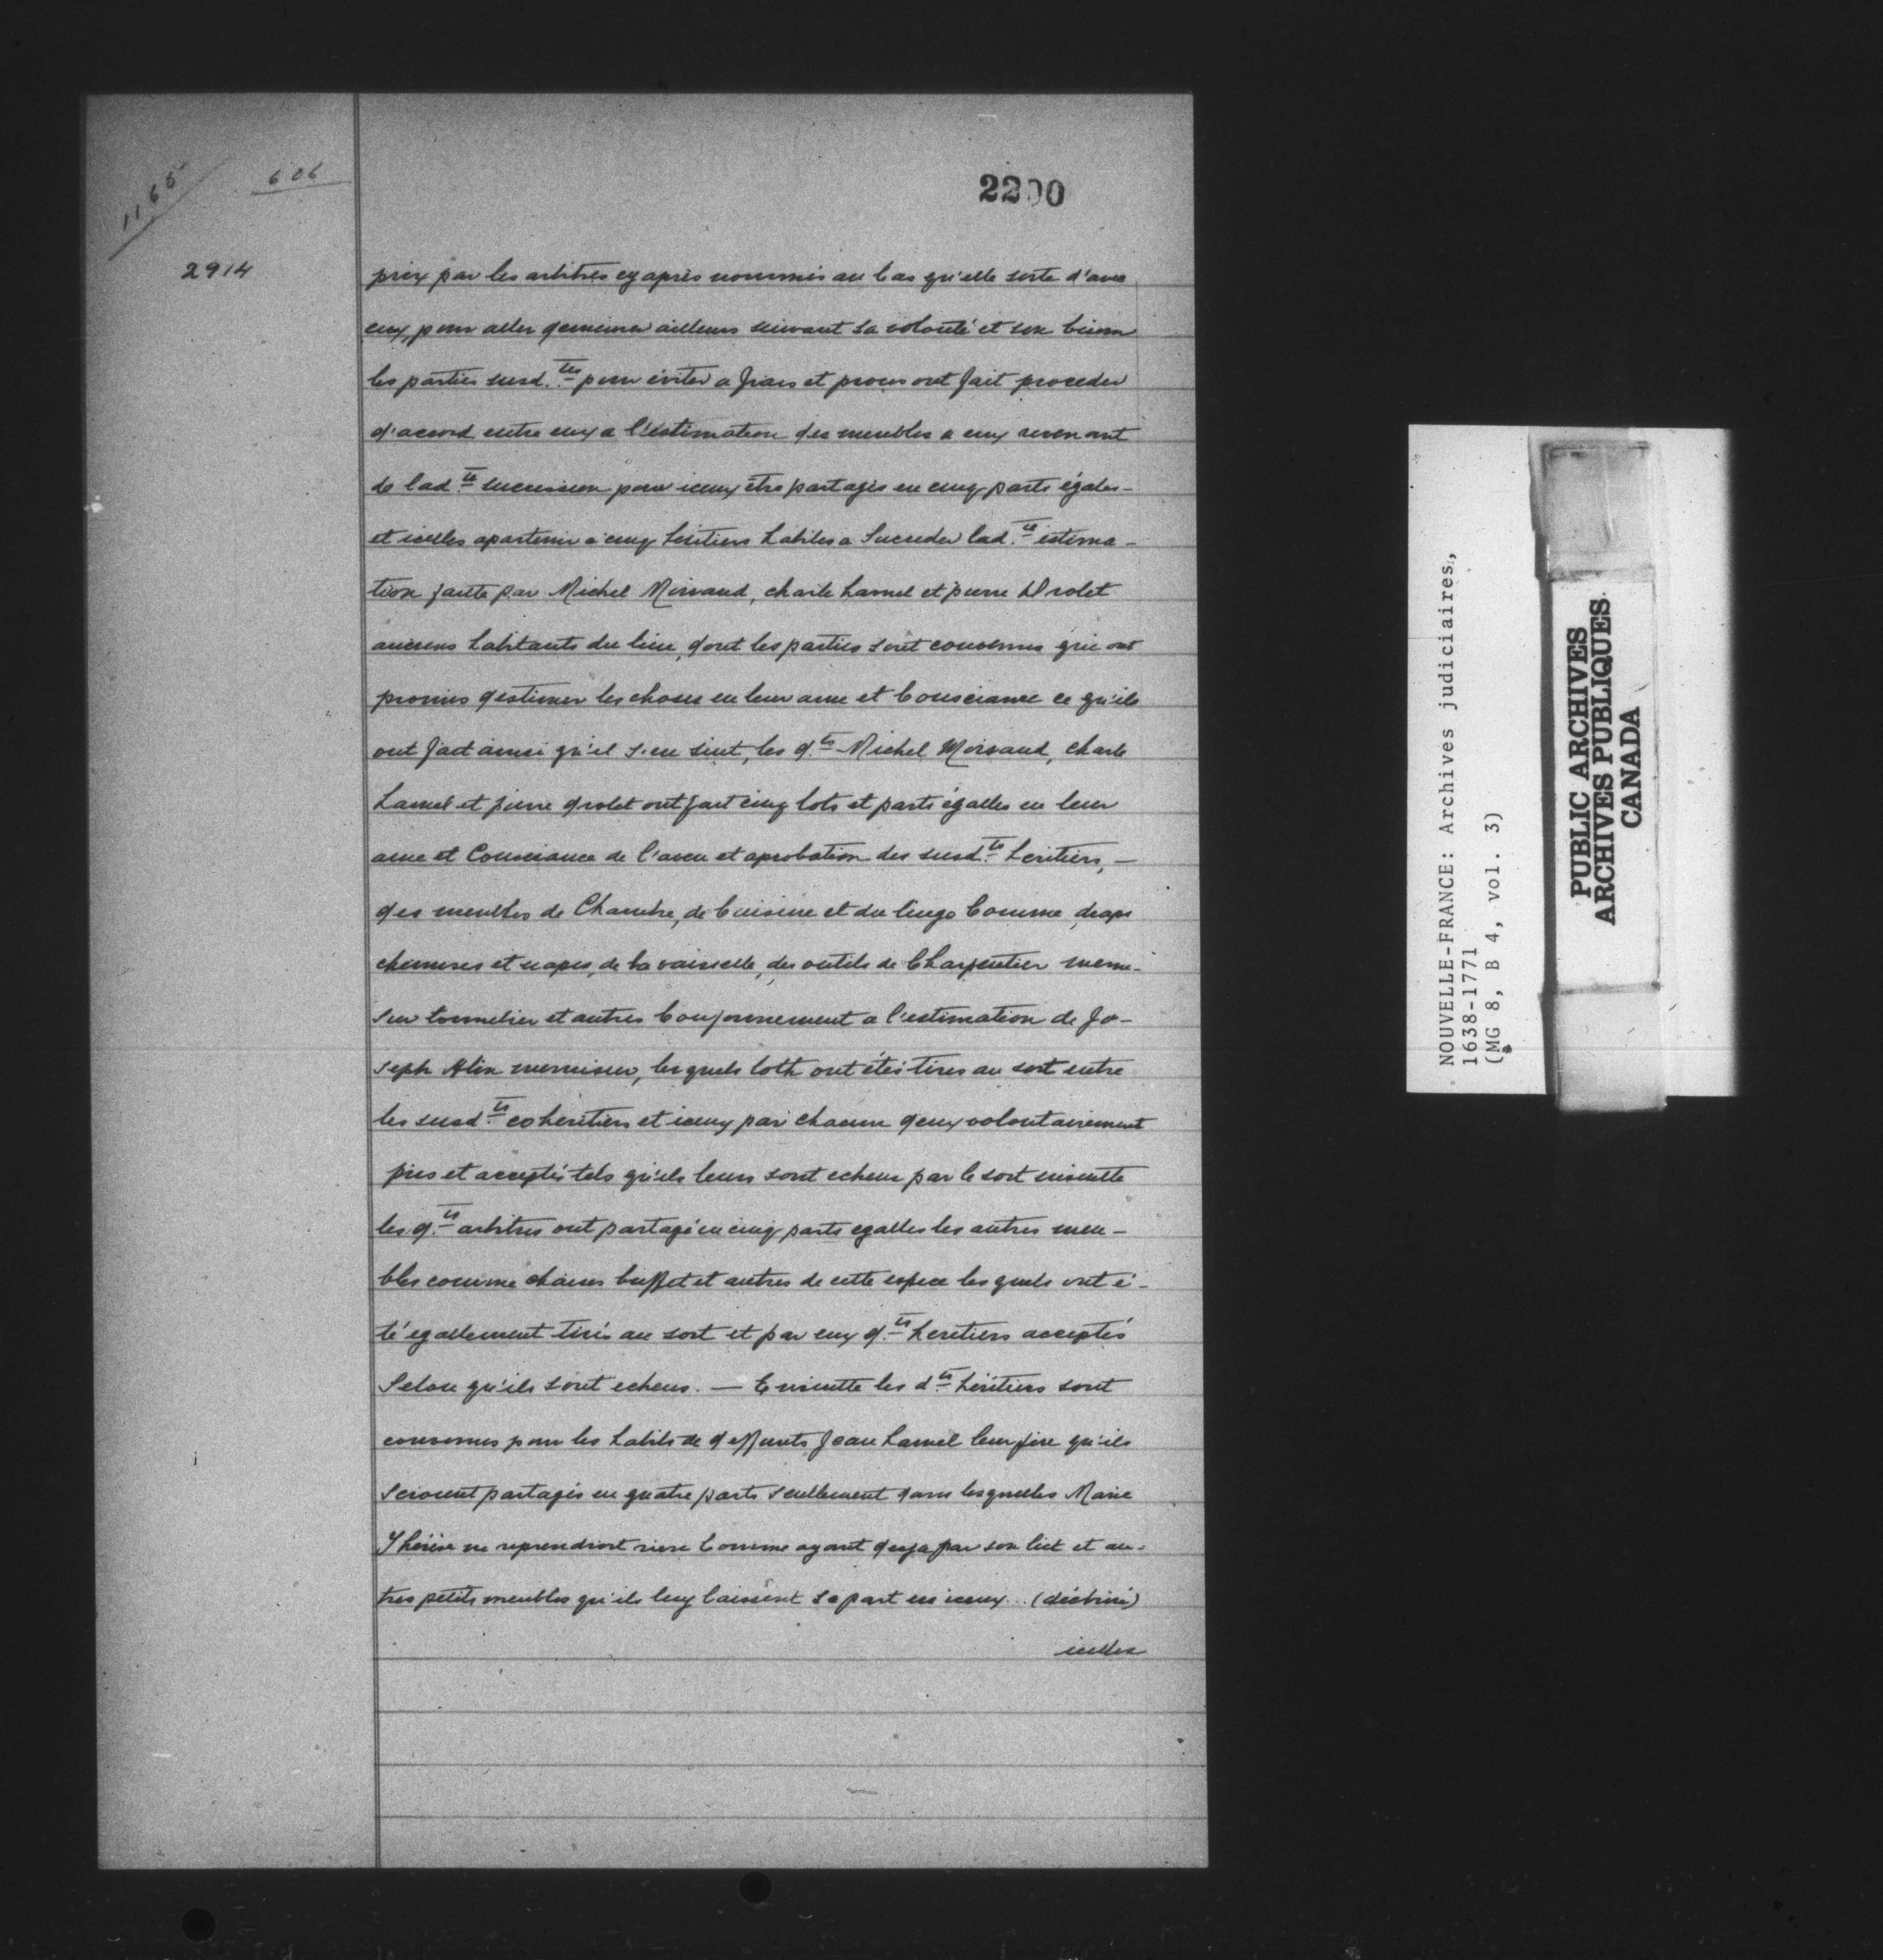 1165
606
2200
2914
prix par les arbitres cy après nommés au cas qu'elle sorte d'avec
eux, pour aller demeurer ailleurs suivant sa volonté et son
les parties susd.tes pour éviter a frais et proces ont fait proceder
d'accord entre eux a l'éstimation des meubles a eux revenant
de lad.te succession pour iceux être partagés en cinq parts égales
et icelles apartenir a cinq héritiers habiles a Succeder lad.te estima-
tion faitte par Michel Morand, charle hamel et pierre Drolet
anciens habitants du lieu, dont les parties sont convenus qui ont
promis destimer les choses en leur ame et Consciance ce qu'ils
ont fait ainsi qu'il s'en suit, les d.ts Michel Morand, charle
hamel et pierre drolet ont fait cinq lots et parts égalles en leur
ame et Consciance de l'aveu et aprobation des susd.ts heritiers, —
des meubles de Chambre, de Cuisine et du linge Comme, draps
chemises et napes, de la vaisselle, des outils de Charpentier menui-
sier tonnelier et autres Conformement a l'estimation de Jo-
seph Alin menuisier, lesquels loth ont étés tirés au sort entre
les susd.ts coheritiers et iceux par chacun deux volontairement
pris et acceptés tels qu'ils leurs sont echeus par le sort ensuitte
les d.ts arbitres ont partagé en cinq parts egalles les autres meu-
bles comme chaises buffet et autres de cette espece lesquels ont é-
té egallement tirés au sort et par eux d.ts heritiers acceptés
Selon qu'ils sont echeus. — Ensuitte les d.ts héritiers sont
convenus pour les habits de deffunts Jean hamel leur père qu'ils
seroient partagés en quatre parts seullement dans lesquelles Marie
Thérèse ne reprendroit rien Comme ayant deja par son lict et au-
tres petits meubles qu'ils luy laissent sa part en iceux... (déchiré)
icelles
NOUVELLE-FRANCE: Archives judiciaires,
1638-1771
(MG 8, B 4, vol. 3)
PUBLIC ARCHIVES
ARCHIVES PUBLIQUES
CANADA